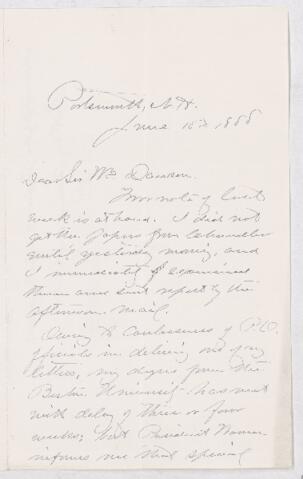 Portsmouth, N.H.
June 15th 1888
Dear Sir Wm Dawson.
Your note of last
week is at hand. I did not
get the papers from Chandler
until yesterday morning, and
I immediately examined
them and sent report by the
afternoon mail.
Owing to carelessness of P.O.
officials in delivering one of my
letters, my degree from the
Boston University has met
with delay of three or four
weeks; but President Warren
informs me that special